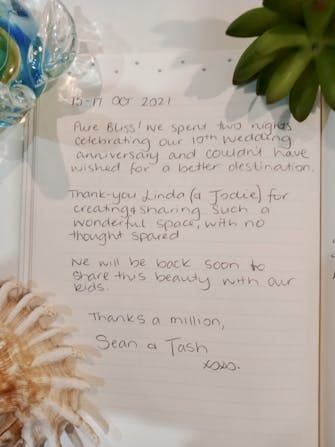 15-17 OCT 2021
Pure Bliss! We spent two nights
celebrating our 10th wedding
anniversary and couldn't have
wished for a better destination.
Thank-you Linda (& Jodie) for
creating & sharing such a
wonderful space, with no
thought spared
We will be back soon to
share this beauty with our
kids.
Thanks a million,
Sean & Tash
xoxo.